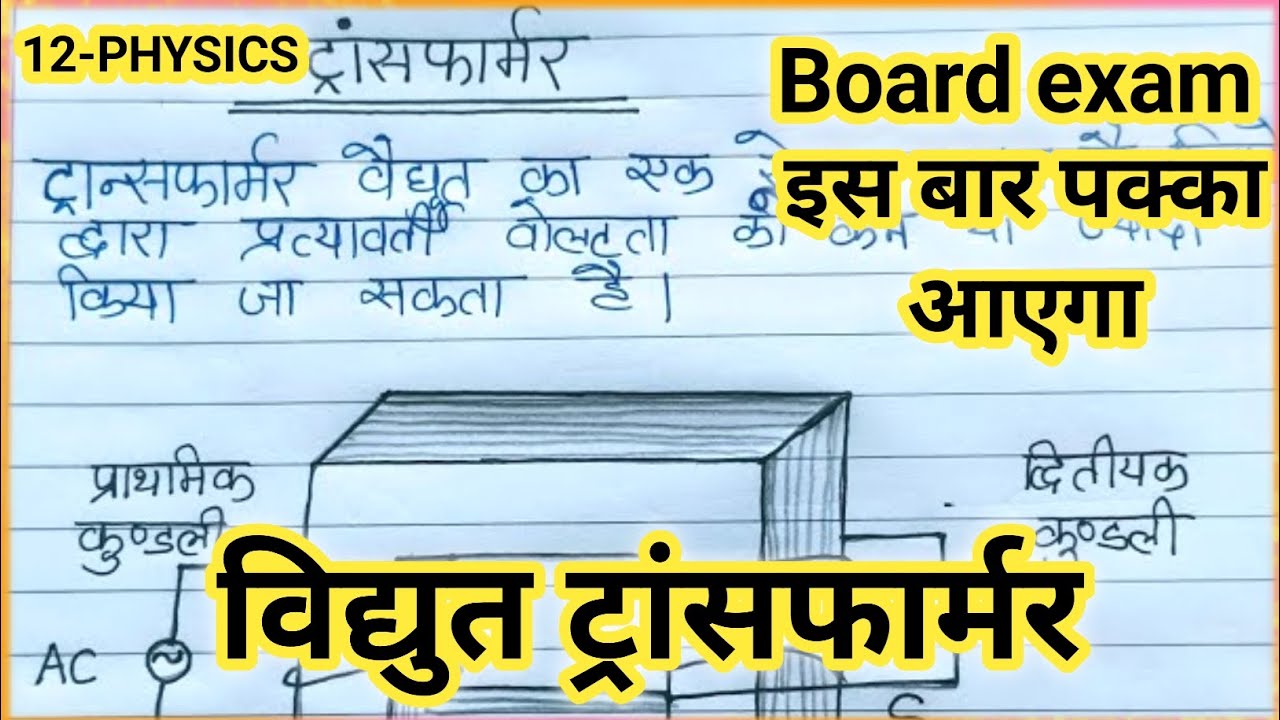 12-PHYSICS
ट्रांसफार्मर
Board exam
इस बार पक्का
आएगा
ट्रान्सफार्मर वैद्युत का एक
द्वारा प्रत्यावर्ती वोल्टता को कम या ज्यादा
किया जा सकता है।
प्राथमिक
कुण्डली
द्वितीयक
कुण्डली
विद्युत ट्रांसफार्मर
AC
S